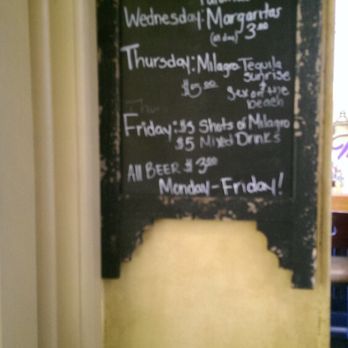 Wednesday: Margaritas
(all day) 3.00
Thursday: Milagro Tequila
sunrise
$5.00 Sex on the
beach
Friday: $3 Shots of Milagro
$5 Mixed Drinks
All BEER $3.00
Monday-Friday!